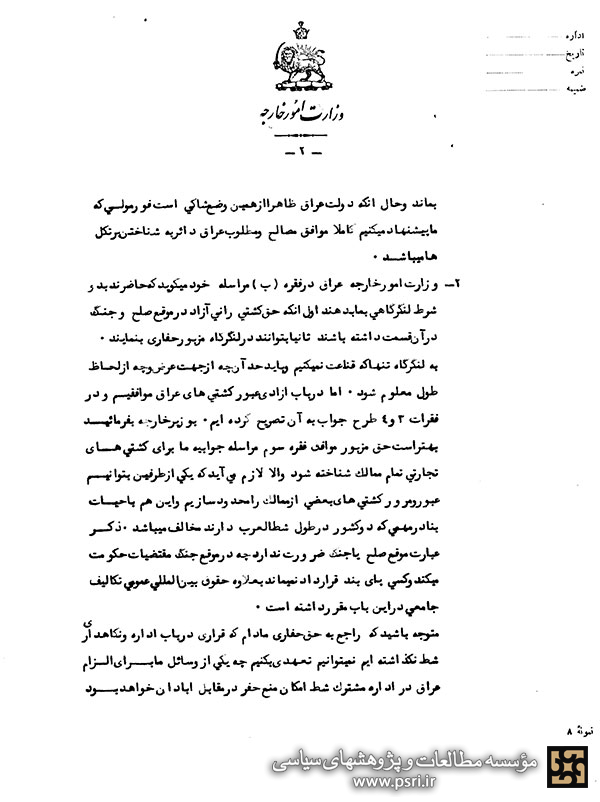 اداره
تاریخ
نمره
ضمیمه
وزارت امور خارجه
ـ ۲ ـ
بماند وحال آنکه دولت عراق ظاهرا از همین وضع شاکی است فورمولی که
ما پیشنهاد میکنیم کاملا موافق مصالح ومطلوب عراق دائر به شناختن پرتکل
ها میباشد ۰
۲ـ وزارت امور خارجه عراق در فقره (ب) مراسله خود میگوید که حاضرند بدو
شرط لنگرگاهی بما بدهند اولی آنکه حق کشتی رانی آزاد در موقع صلح و جنگ
در آن قسمت داشته باشند ثانیا بتوانند در لنگرگاه مزبور حفاری بنمایند ۰
به لنگرگاه تنها که قناعت نمیکنیم وباید حد آن چه از جهت عرض وچه از لحاظ
طول معلوم شود ۰ اما در باب آزادی عبور کشتی های عراق موافقیم و در
فقرات ۳ و ٤ طرح جواب به آن تصریح کرده ایم ۰ بوزیر خارجه بفرمائید
بهتر است حق مزبور موافق فقره سوم مراسله جوابیه ما برای کشتی های
تجارتی تمام ممالک شناخته شود والا لازم می آید که یکی از طرفین بتوانیم
عبور و مرور کشتی های بعضی از ممالک را محدود سازیم واین هم با حیات
بنادر مهمی که دو کشور در طول شط العرب دارند مخالف میباشد ۰ ذکر
عبارت موقع صلح یا جنگ ضرورت ندارد چه در موقع جنگ مقتضیات حکومت
میکند وکسی پای بند قرارداد نمیماند بعلاوه حقوق بین المللی عمومی تکالیف
جامعی در این باب مقرر داشته است ۰
متوجه باشید که راجع به حق حفاری مادام که قراری در باب اداره ونگاهداری
شط نگذاشته ایم نمیتوانیم تعهدی بکنیم چه یکی از وسائل ما برای الزام
عراق در اداره مشترک شط امکان منع حفر در مقابل آبادان خواهد بود
نمونهٔ ۸
مؤسسه مطالعات و پژوهشهای سیاسی
www.psri.ir